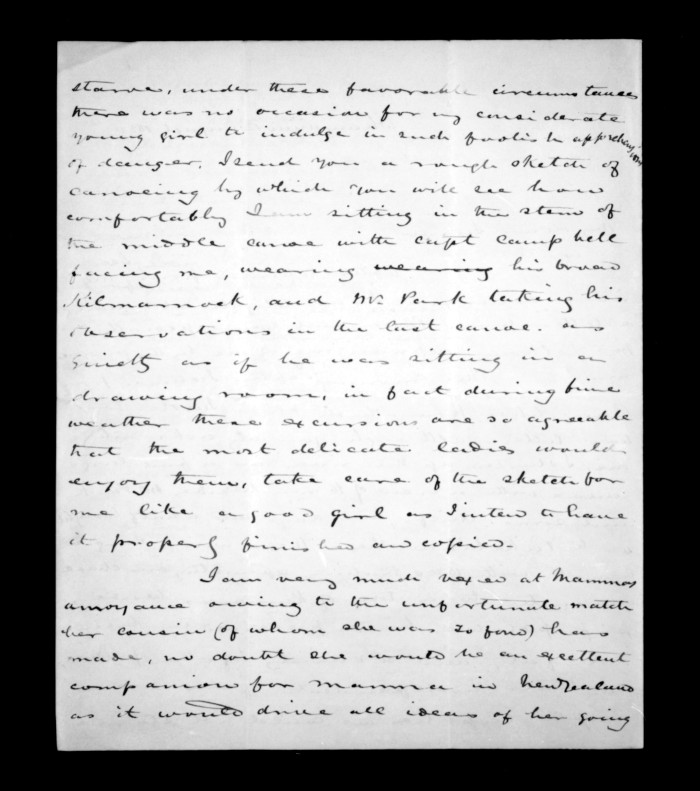 starve, under these favorable circumstances
there was no occasion for my considerate
young girl to indulge in such foolish apprehensions
of danger. I send you a rough sketch of
canoeing by which you will see how
comfortably I am sitting in the stern of
the middle canoe with capt campbell
facing me, wearing wearing his broad
Kilmarnock, and Mr Park taking his
observations in the last canoe. as
quietly as if he was sitting in a
drawing room, in fact during fine
weather these excursions are so agreeable
that the most delicate ladies would
enjoy them, take care of the sketch for
me like a good girl as I intend to have
it properly finished and copied.
I am very much vexed at Mammas
annoyance owing to the unfortunate match
her cousin (of whom she was so fond) has
made, no doubt she would be an excellent
companion for mamma in New Zealand
as it would drive all ideas of her going